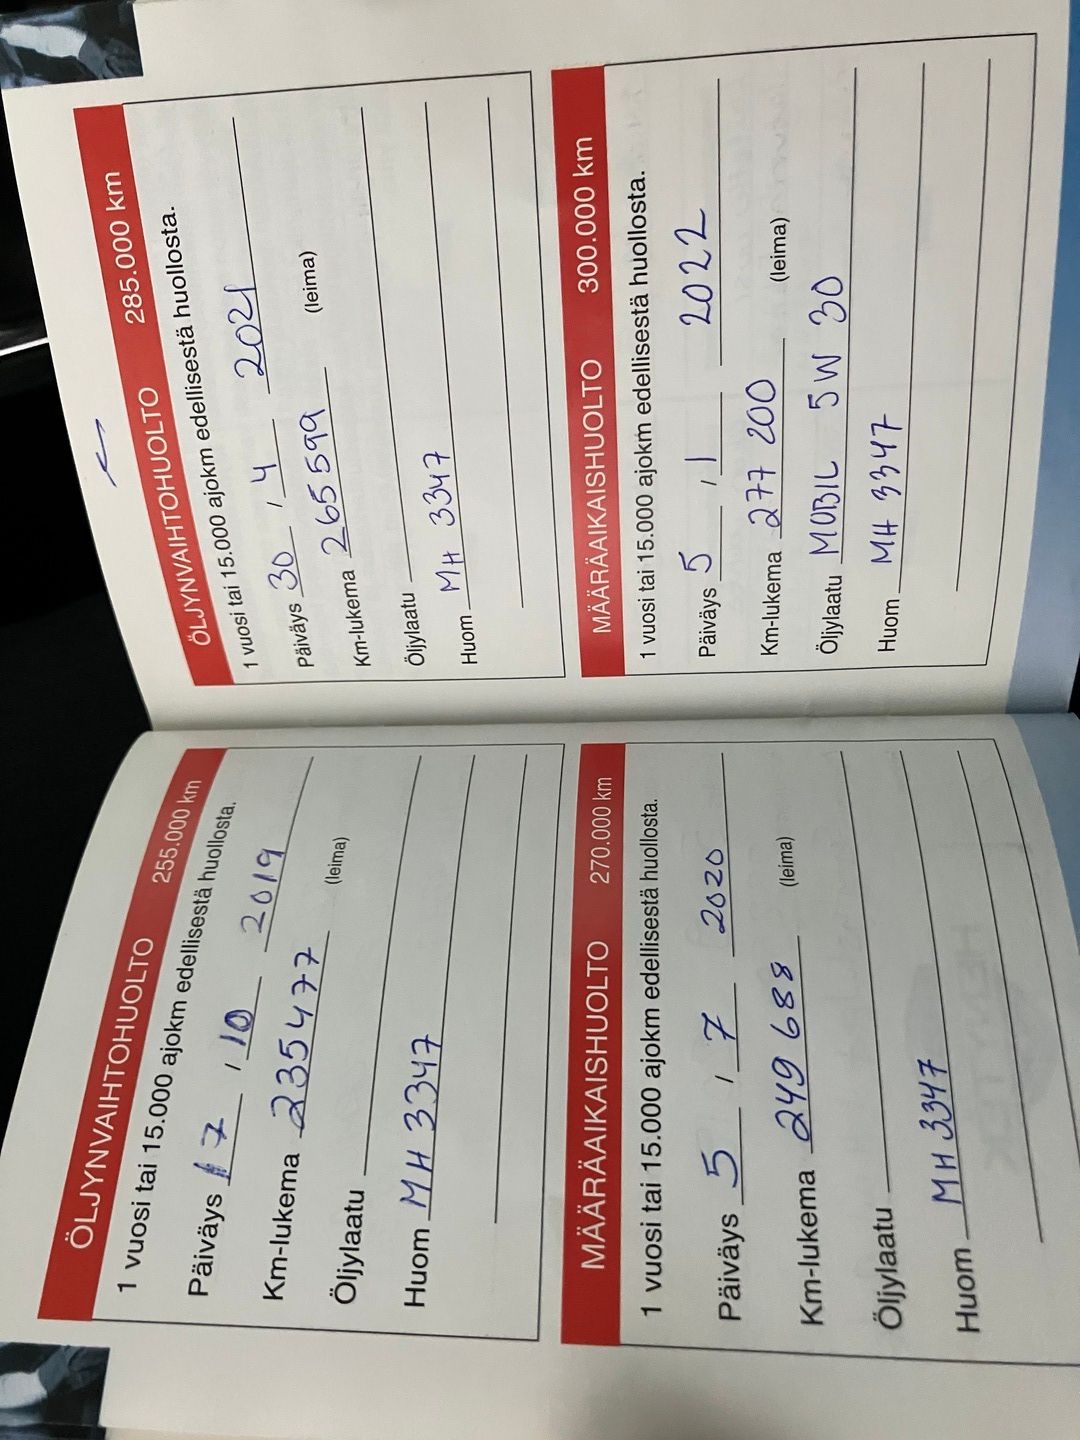 ÖLJYNVAIHTOHUOLTO 255.000 km
1 vuosi tai 15.000 ajokm edellisestä huollosta.
Päiväys 17 / 10 2019
Km-lukema 235477 (leima)
Öljylaatu
Huom MH 3347
MÄÄRÄAIKAISHUOLTO 270.000 km
1 vuosi tai 15.000 ajokm edellisestä huollosta.
Päiväys 5 / 7 2020
Km-lukema 249 688 (leima)
Öljylaatu
Huom MH 3347
ÖLJYNVAIHTOHUOLTO 285.000 km
1 vuosi tai 15.000 ajokm edellisestä huollosta.
Päiväys 30 / 4 2021
Km-lukema 265599 (leima)
Öljylaatu
Huom MH 3347
MÄÄRÄAIKAISHUOLTO 300.000 km
1 vuosi tai 15.000 ajokm edellisestä huollosta.
Päiväys 5 / 1 2022
Km-lukema 277 200 (leima)
Öljylaatu MOBIL 5W 30
Huom MH 3347